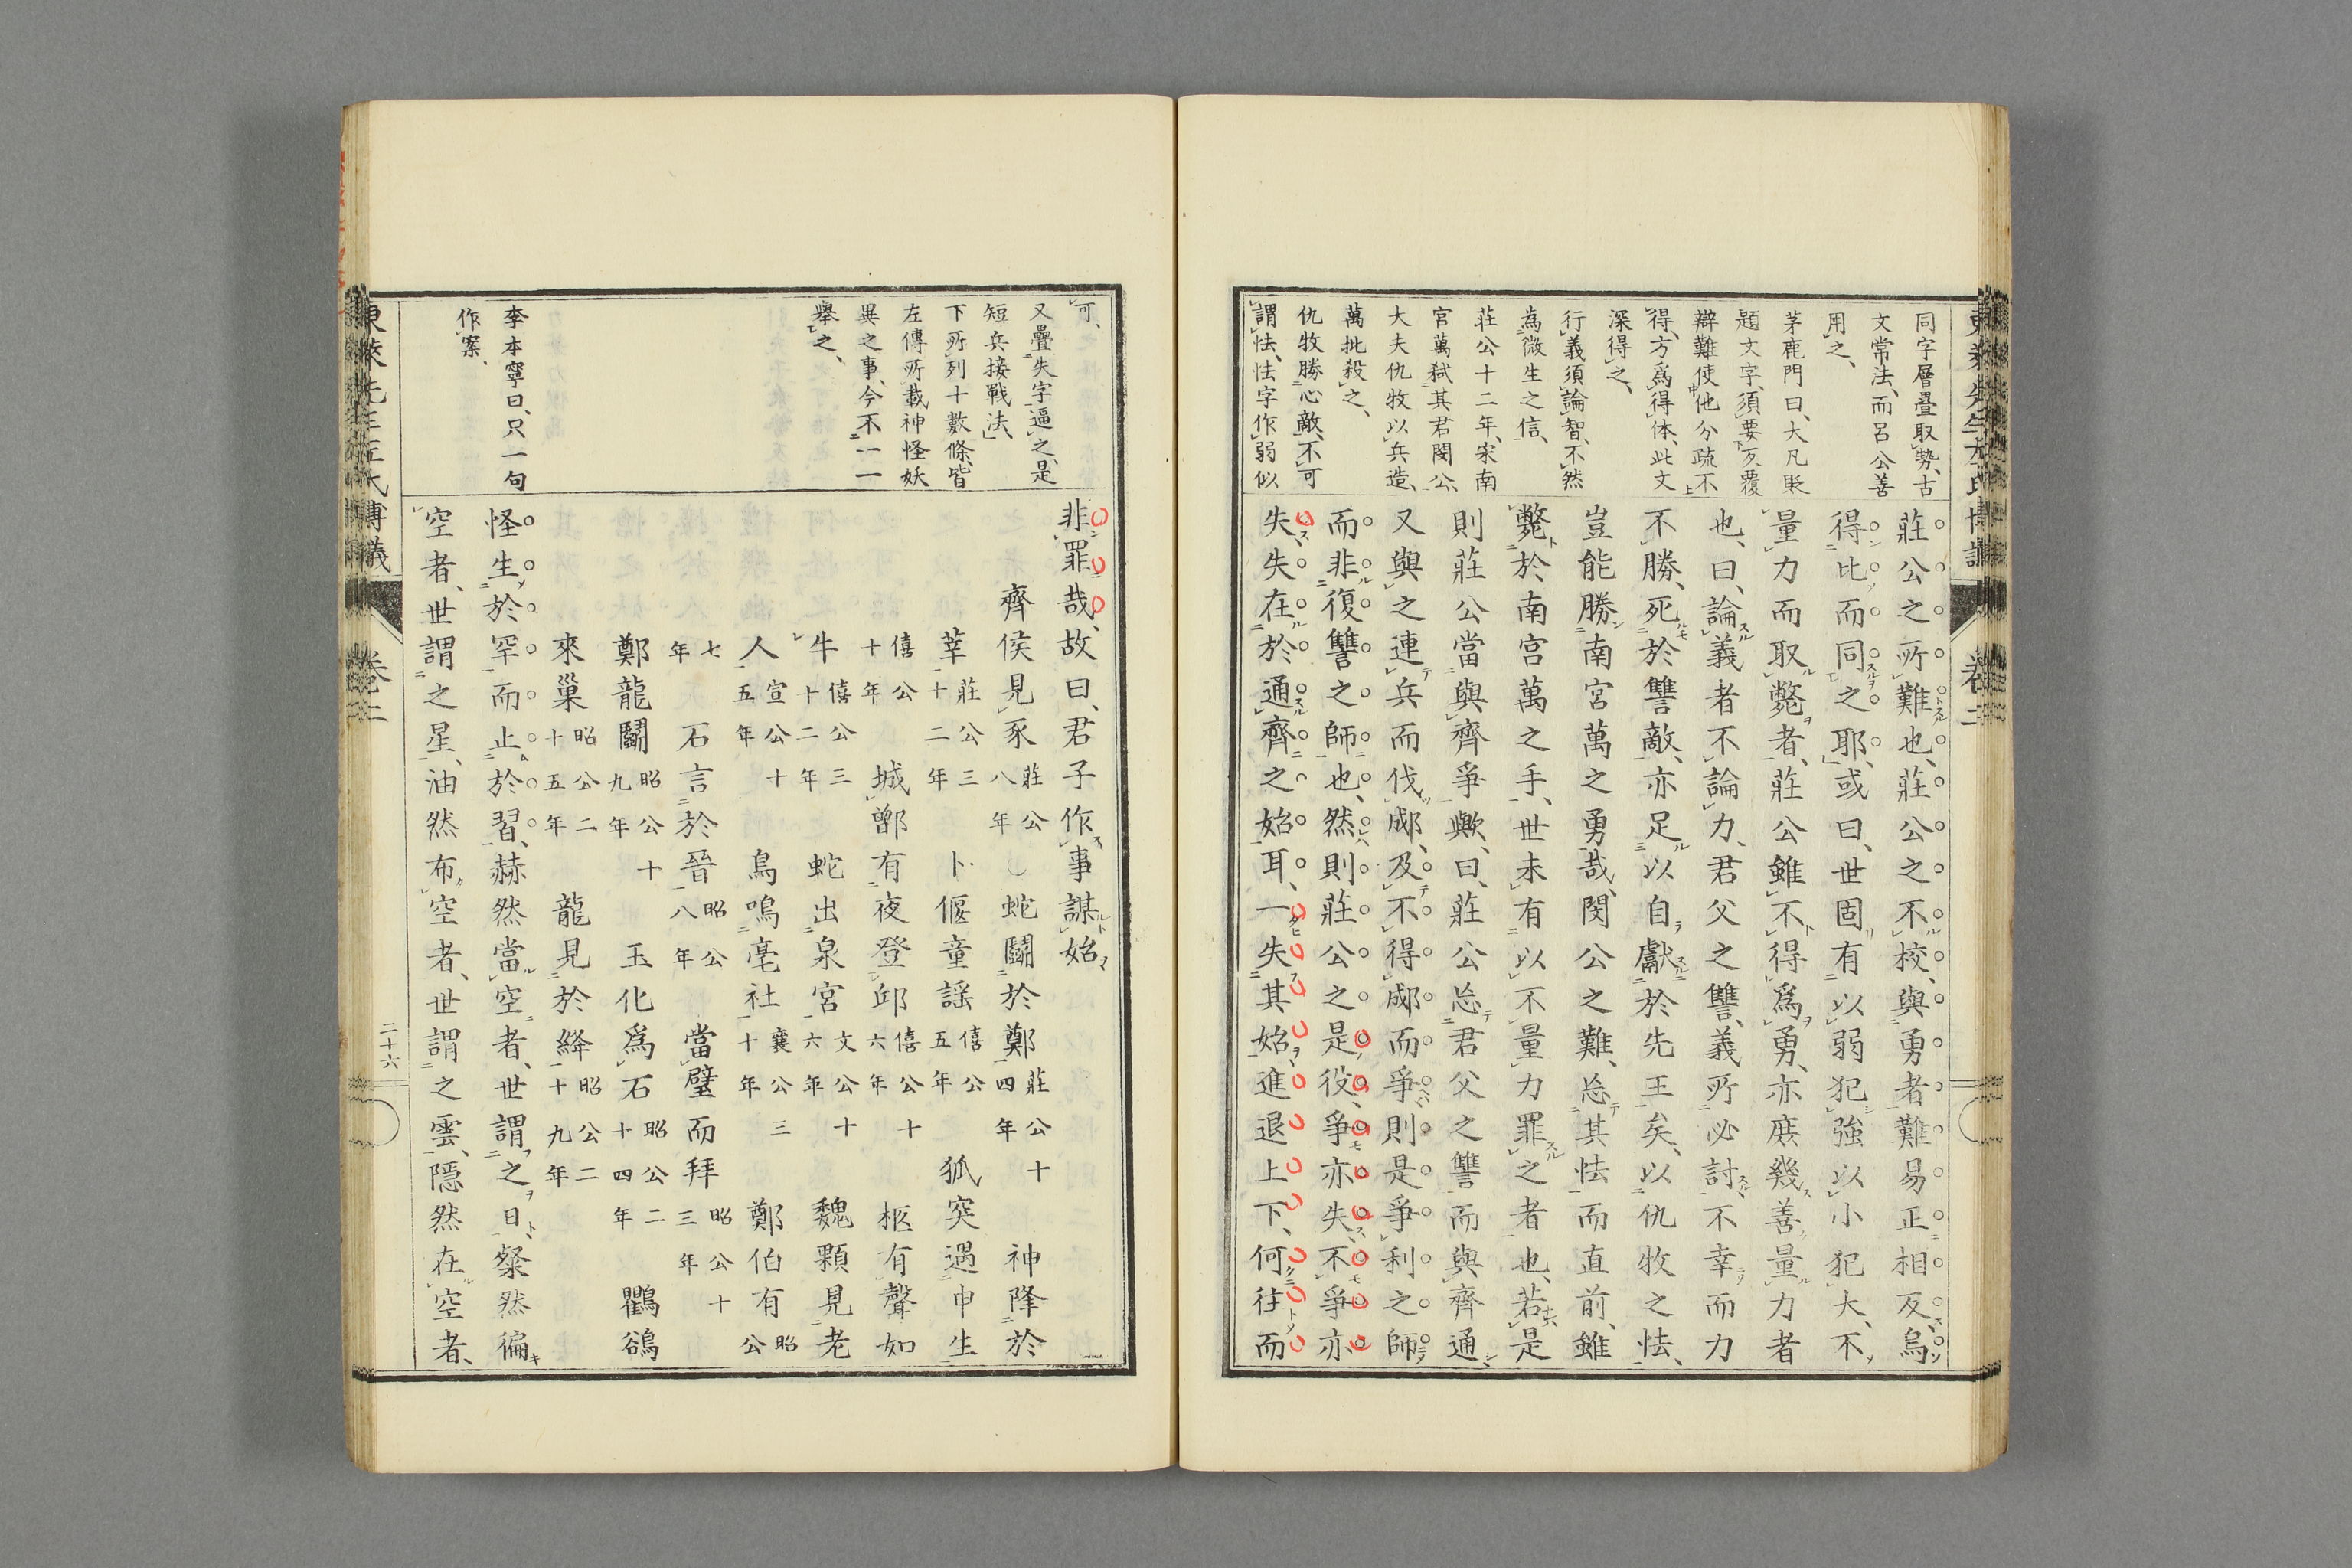 同字層疊取勢、古
文常法、而呂公善
用之、
茅鹿門曰、大凡貶
題文字、須要反覆
辯難使他分疏不
得、方爲得体、此文
深得之、
行義須論智、不然
為微生之信、
莊公十二年、宋南
宮萬弑其君閔公、
大夫仇牧以兵造、
萬批殺之、
仇牧勝心敵、不可
謂怯、怯字作弱似
莊公之所難也、莊公之不校、與勇者難易正相反、烏
得比而同之耶、或曰、世固有以弱犯強以小犯大、不
量力而取斃者、莊公雖不得爲勇、亦庶幾善量力者
也、曰、論義者不論力、君父之讐、義所必討、不幸而力
不勝、死於讐敵、亦足以自獻於先王矣、以仇牧之怯、
豈能勝南宮萬之勇哉、閔公之難、忘其怯而直前、雖
斃於南宮萬之手、世未有以不量力罪之者也、若是
則莊公當與齊爭歟、曰、莊公忘君父之讐而與齊通、
又與之連兵而伐郕、及不得郕而爭、則是爭利之師、
而非復讐之師也、然則莊公之是役、爭亦失、不爭亦
失、失在於通齊之始耳、一失其始、進退上下、何往而
可、
又疊失字逼之、是
短兵接戰法、
下所列十數條、皆
左傳所載神怪妖
異之事、今不一一
舉之、
李本寧曰、只一句
作案、
非罪哉、故曰、君子作事謀始
齊侯見豕莊公八年 蛇鬬於鄭莊公十四年 神降於
莘莊公三十二年 卜偃童謠僖公五年 狐突遇申生
僖公十年 城鄫有夜登邱僖公十六年 柩有聲如
牛僖公三十二年 蛇出泉宮文公十六年 魏顆見老
人宣公十五年 鳥鳴亳社襄公三十年 鄭伯有昭公
七年 石言於晉昭公八年 當璧而拜昭公十三年
鄭龍鬬昭公十九年 玉化爲石昭公二十四年 鸜鵒
來巢昭公二十五年 龍見於絳昭公二十九年
怪生於罕而止於習、赫然當空者、世謂之日、粲然徧
空者、世謂之星、油然布空者、世謂之雲、隱然在空者、
東萊先生左氏博議
卷二
二十六